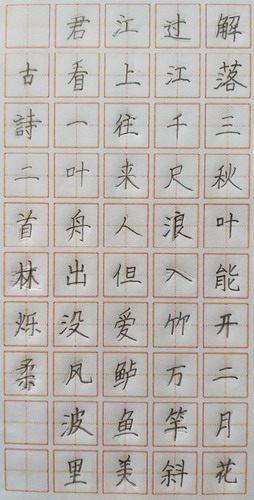 解落三秋叶能开二月花
过江千尺浪入竹万竿斜
江上往来人但爱鲈鱼美
君看一叶舟出没风波里
古詩二首林烁柔